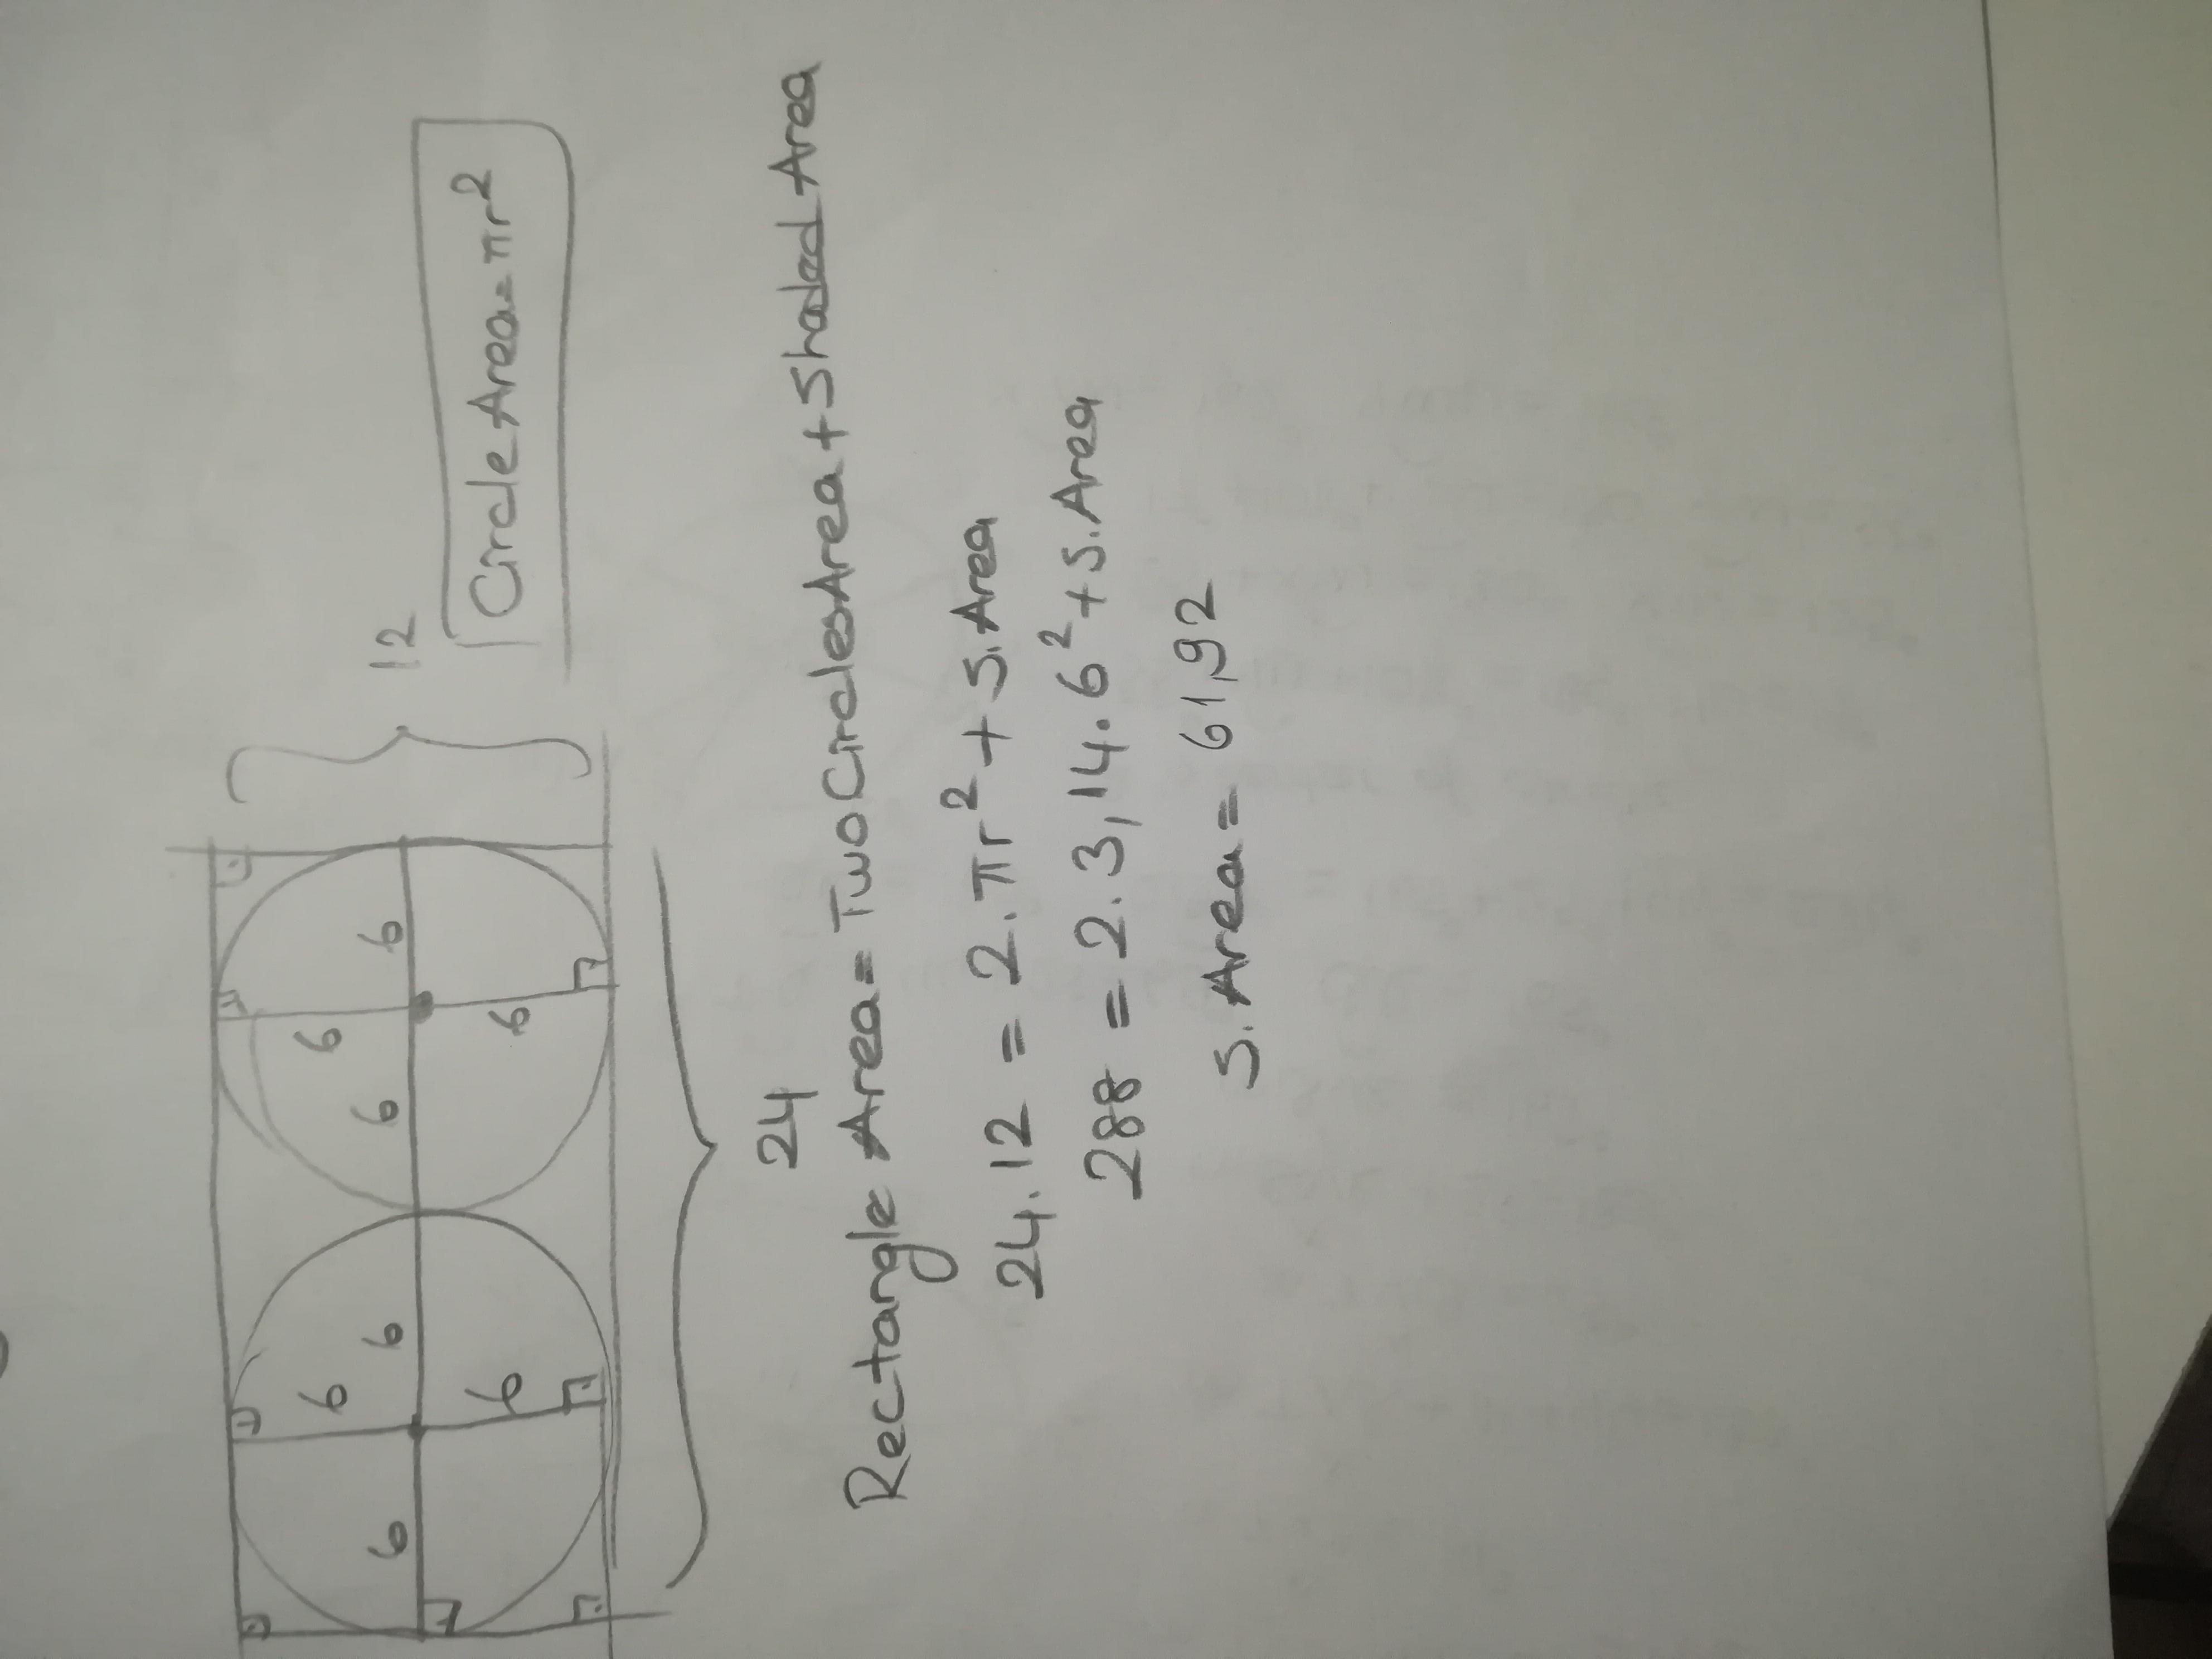 12
Circle Area = πr²
6 6 6 6
6 6
6 6
24
Rectangle Area = Two Circles Area + Shaded Area
24.12 = 2.πr² + S.Area
288 = 2.3,14.6² + S.Area
S.Area = 61,92